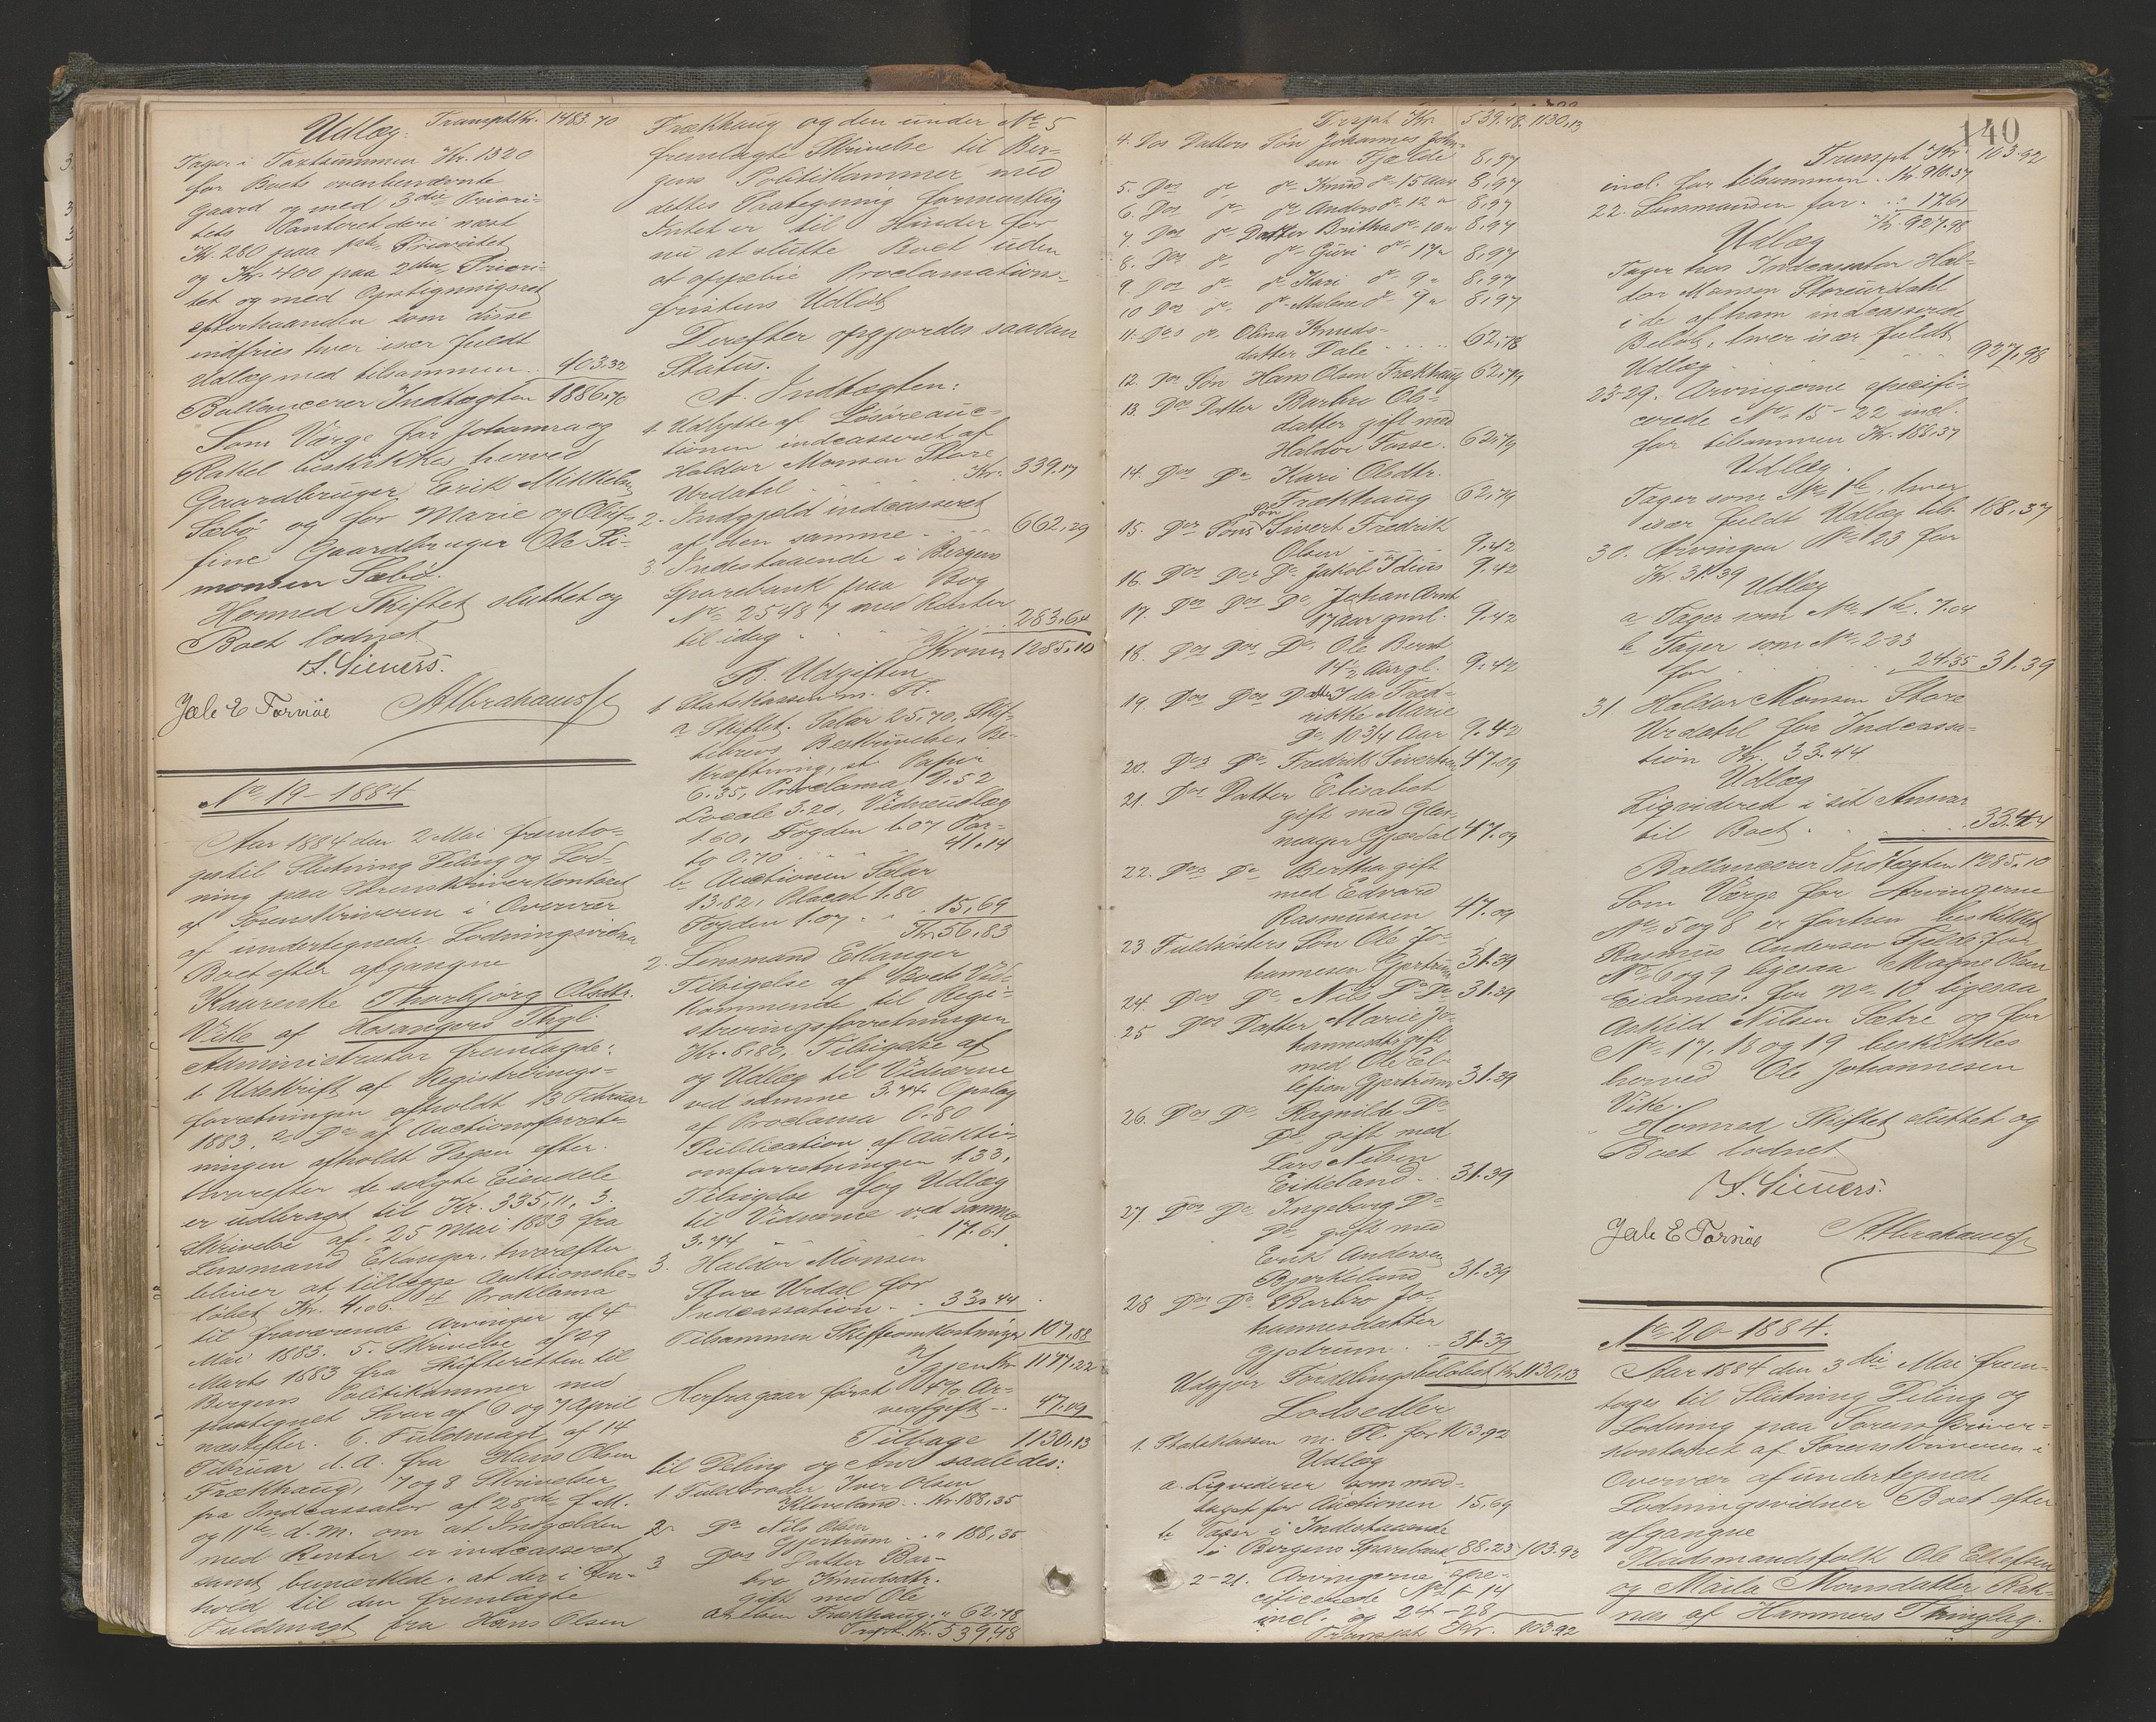 Udlæg. Transpt Kr. 1483.70
Tager i Taxtsummen Kr. 1320
for Boets ovenbenævnte
Gaard og med 3die Priori-
tets Panteret deri næst
Kr. 280 paa 1ste Prioritet
og Kr. 400 paa 2den Priori-
tet og med Opstigningsret
efterhaanden som disse
indfries hver især fuldt
Udlæg med tilsammen .. 403.32
Ballancerer Indtægten 1886.70
Som Værge for Johanna og
Rakel beskikkes herved
Gaardbruger Erik Mikkelsen
Sæbø og for Marie og Oluf-
fine Gaardbruger Ole Si-
monsen Sæbø.
Hermed Skiftet sluttet og
Boet lodnet
F. Sievers.
Jale E Tornöe Abrahamsen
No 19 - 1884
Aar 1884 den 2 Mai fremto-
ges til Slutning Deling og Lod-
ning paa Sorenskriverkontoret
af Sorenskriveren i Overvær
af undertegnede Lodningsvidner
Boet efter afgangne
Kaarenke Thorbjørg Olsdtr.
Vike af Hosangers Thgl.
Administrator fremlagde:
1. Udskrift af Registrerings-
forretningen afholdt 13 Februar
1883. 2. Do af Auctionsforret-
ningen afholdt Dagen efter.
hvorefter de solgte Eiendele
er udbragt til Kr. 335,11, 3.
Skrivelse af 25 Mai 1883 fra
Lensmand Eknger, hvorefter
bliver at tillægge Auktionsbe-
løbet Kr. 4,06. 4 Proklama
til fraværende Arvinger af 4
Mai 1883. 5. Skrivelse af 29
Marts 1883 fra Skifteretten til
Bergens Politikammer med
paategnet Svar af 6 og 7 April
næstefter. 6. Fuldmagt af 14
Februar d. A. fra Hans Olsen
Frækhaug, 7 og 8 Skrivelser
fra Indcassator af 28de f. M.
og 11te d. M. om at Indgjælden
med Renter er indcasseret
samt bemærkede, at der i Hen-
hold til den fremlagte
Fuldmagt fra Hans Olsen
Frækhaug og den under No 5
fremlagte Skrivelse til Ber-
gens Politikammer med
dettes Paategning formentlig
Intet er til Hinder for
nu at slutte Boet uden
at oppebie Proclamations-
fristens Udløb
Derefter opgjordes saadan
Status.
A. Indtægten:
1. Udbytte af Løsøreauc-
tionen indcasseret af
Haldor Monsen Store
Urdahl . . . Kr. 339.17
2. Indgjæld indcasseret
af den samme . . . 662,29
3. Indestaaende i Bergens
Sparebank paa Bog
No 25487 med Renter
til idag . . . 283.64
Kroner 1285,10
B. Udgiften
1. Statskassen m. Fl.
a. Skiftet. Salær 25,70, Skif-
tebrevs Beskrivelse, Be-
kræftning, st. Papir
6.35, Proclama 2.52
Locale 3.20, Vidneudlæg
1.60, Fogden 1.07 Por-
to 0.70 . . . 41.14
b. Auctionen Salær
13.82, Placat 1.80
Fogden 1.07 . . . 15,69
Kr. 56,83
2. Lensmand Eknger
Tilsigelse af Boets Ved-
kommende til Regi-
streringsforretningen
Kr. 6,80, Tilsigelse af
og Udlæg til Vidnerne
ved samme 3.74 Opslag
af Proclama 0.80
Publication af Aukti-
onsforretningen 1.33,
Tilsigelse af og Udlæg
til Vidnerne ved samme
3.74 17.61
3. Haldor Monsen
Store Urdal for
Indcassation . . 33.44
Tilsammen Skifteomkostninger 107,88
Igjen Kr. 1177,22
Herfra gaar først 4% Ar-
veafgift . . 47.09
Tilbage 1130,13
til Deling og Arv saaledes:
1. Fuldbroder Iver Olsen
Kleveland . . Kr. 188,35
2. Do Nils Olsen
Gjertrum . . " 188,35
3 Dos Datter Bar-
bro Knudsdtr.
gift med Ole
Olsen Frækhaug . " 62.78
Trspt. Kr. 539,48
Trspt Kr. 539.48 1130,13
4. Dos Datters Søn Johannes Johan-
sen Fjelde 8,97
5. Dos do do Knud do 15 aar 8,97
6. Dos do do Anders do 12 " 8,97
7. Dos do Datter Britha do 10 " 8,97
8. Dos do do Guri do 17 " 8,97
9 Dos do do Kari do 9 " 8,97
10 Dos do do Malene do 7 " 8,97
11. Dos do Olina Knuds-
datter Dale . . . . . 62,78
12. Dos Søn Hans Olsen Frækhaug 62,79
13. Dos Datter Barbro Ols-
datter gift med
Haldor Fosse . 62,79
14. Dos Do Kari Olsdtr.
Frækhaug 62,79
15. Dos Søns Søn Sivert Fredrik
Olsen . . . . 9.42
16. Dos Dos Do Jakob Idius 9.42
17. Dos Dos Do Johan Arnt
17 aar gml. 9.42
18. Dos Dos Do Ole Bernt
14½ Aar gl. 9.42
19. Dos Dos Datter Ida Fred-
rikke Marie
Do 10 3/4 Aar 9.42
20. Dos Do Fredrik Sivertsen 47.09
21. Dos Datter Elisabet
gift med Glas-
mager Gjerdal 47.09
22. Dos Do Bertha gift
med Edvard
Rasmussen 47.09
23 Fuldsøsters Søn Ole Jo-
hannesen Gjertrum 31.39
24. Dos Do Nils Do Do 31.39
25 Dos Datter Marie Jo-
hannesdtr gift
med Ole El-
lefsen Gjertrum 31.39
26. Dos Do Ragnilde Do
Do gift med
Lars Nilsen
Eikeland . . 31.39
27. Dos Do Ingeborg Do
Do gift med
Erik Andersen
Bjerkeland 31.39
28 Dos Do Barbro Jo-
hannesdatter
Gjetrum . . 31.39
Udgjør Fordelingsbeløbet Kr. 1130,13
Lodsedler
1. Statskassen m. Fl. for 103.92
Udlæg
a. Liqviderer som mod-
taget for Auctionen 15,69
b. Tager i Indestaaende
i Bergens Sparebank 88.23 103.92
2-21. Arvingerne spe-
cificerede No 1-14
incl. og 24-28
Transpt Kr. 103.92
140
Transpt Kr. 103.92
incl. for tilsammen . Kr. 910.37
22. Lensmanden for . . . 17.61
Kr. 927.98
Udlæg
Tager hos Indcassator Hal-
dor Monsen Storeurdahl
i de af ham indcasserede
Beløb, hver især fuldt
Udlæg . . . 927,98
23-29. Arvingerne specifi-
cerede No 15-22 incl.
for tilsammen Kr. 188.37
Udlæg.
Tager som No 1 b, hver
især fuldt Udlæg tils. 188,37
30. Arvingen No 23 for
Kr. 31.39
Udlæg
a. Tager som No 1 b. 7.04
b. Tager som No 2-23
for . . . 24.35 31.39
31. Haldor Monsen Store
Urdahl for Indcassa-
tion Kr. 33.44
Udlæg
Liqvideret i sit Ansvar
til Boet . . . 33.44
Ballancerer Indtægten 1285.10
Som Værge for Arvingerne
No 5 og 8 er forhen beskikket
Rasmus Andersen Fjelde for
No 6 og 9 ligesaa Magne Olsen
Eidsnæs. for No 10 ligesaa
Askild Nilsen Sætre og for
No 17, 18 og 19 beskikkes
herved Ole Johannesen
Vike.
Hermed Skiftet sluttet og
Boet lodnet
F. Sievers.
Jale E Tornöe Abrahamsen
No 20 - 1884.
Aar 1884 den 3die Mai frem-
toges til Slutning Deling og
Lodning paa Sorenskriver-
kontoret af Sorenskriveren i
Overvær af undertegnede
Lodningsvidner Boet efter
afgangne
Pladsmandsfolk Ole Ellefsen
og Marta Monsdatter Rak-
næs af Hammers Thinglag.